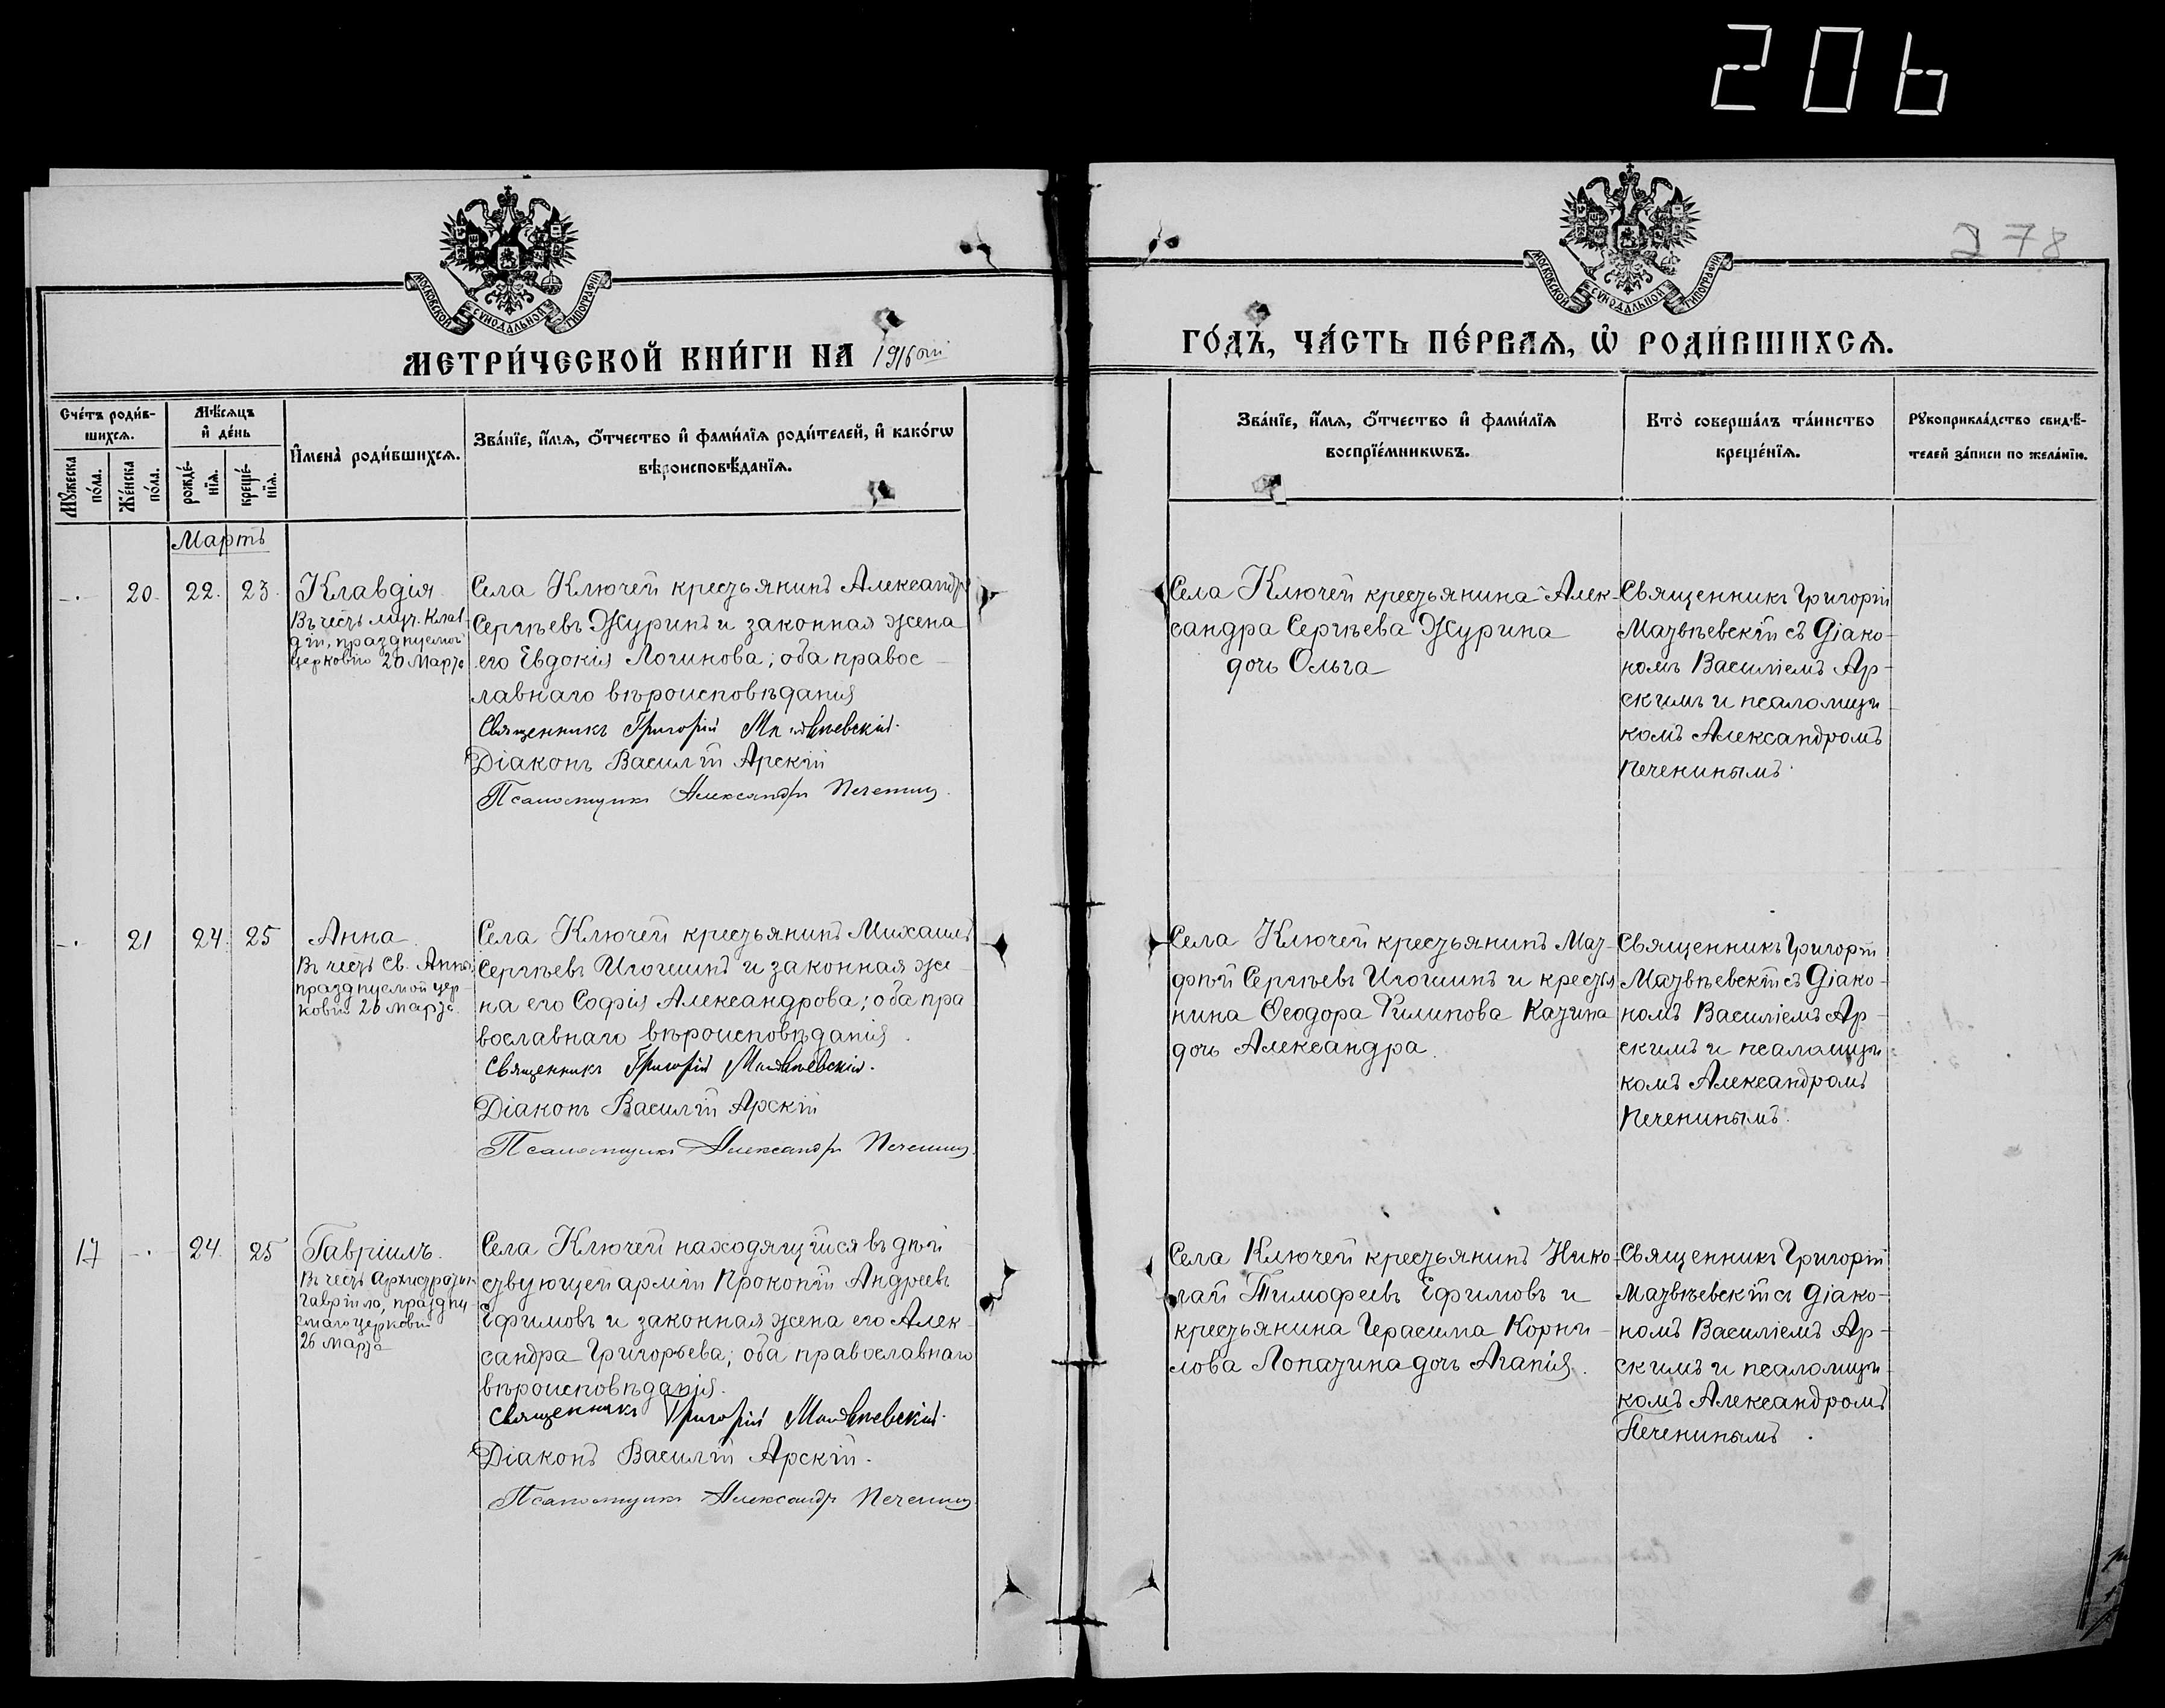 206
278
МОСКОВСКОЙ СѴНОДАЛЬНОЙ ТИПОГРАФІИ
МОСКОВСКОЙ СѴНОДАЛЬНОЙ ТИПОГРАФІИ
МЕТРИ́ЧЕСКОЙ КНИ́ГИ НА 1916 ый
ГО́ДЪ, ЧА́СТЬ ПЕ́РВАЯ, Ѡ РОДИ́ВШИХСЯ.
Сче́тъ роди́в-
шихся.
Мѣ́сяцъ
и҆ де́нь
Мꙋ́жеска
по́ла.
Же́нска
по́ла.
рожде́-
нїя.
креще́-
нїя.
И҆мена̀ роди́вшихся.
Зва́нїе, и҆́мя, ѻ҆́тчество и҆ фами́лїя роди́телей, и҆ како́гѡ
вѣроисповѣ́данїя.
Зва́нїе, и҆́мя, ѻ҆́тчество и҆ фами́лїя
воспрїе́мникѡвъ.
Кто̀ соверша́лъ та́инство
креще́нїя.
Рꙋкоприкла́дство свидѣ́-
телей за́писи по жела́нїю.
Мартъ
-. 20. 22. 23.
Клавдія
Въ честь муч. Клав-
діи, празднуемой
церковію 20 марта
Села Ключей крестьянинъ Александръ
Сергѣевъ Журинъ и законная жена
его Евдокія Логинова; оба правос-
лавнаго вѣроисповѣданія
Священникъ Григорій Матвѣевскій.
Діаконъ Василій Арскій
Псаломщикъ Александръ Печенинъ.
Села Ключей крестьянина Алек-
сандра Сергѣева Журина
дочь Ольга
Священникъ Григорій
Матвѣевскій съ діако-
номъ Василіемъ Ар-
скимъ и псаломщи-
комъ Александромъ
Печенинымъ.
-. 21 24. 25
Анна
Въ честь Св. Анны,
празднуемой цер-
ковію 26 марта.
Села Ключей крестьянинъ Михаилъ
Сергѣевъ Игошинъ и законная же-
на его Софія Александрова; оба пра
вославнаго вѣроисповѣданія.
Священникъ Григорій Матвѣевскій.
Діаконъ Василій Арскій
Псаломщикъ Александръ Печенинъ.
Села Ключей крестьянинъ Мат-
фѣй Сергѣевъ Игошинъ и крестья
нина Ѳеодора Филипова Казина
дочь Александра.
Священникъ Григорій
Матвѣевскій съ діако-
номъ Василіемъ Ар-
скимъ и псаломщи-
комъ Александромъ
Печенинымъ.
17 -. 24. 25
Гавріилъ.
Въ честь Архистратига
Гавріила, праздну-
емаго церковію
26 марта
Села Ключей находящійся въ дѣй
ствующей арміи Прокопій Андреевъ
Ефимовъ и законная жена его Алек-
сандра Григорьева; оба православнаго
вѣроисповѣданія.
Священникъ Григорій Матвѣевскій.
Діаконъ Василій Арскій.
Псаломщикъ Александръ Печенинъ
Села Ключей крестьянинъ Нико-
лай Тимофеевъ Ефимовъ и
крестьянина Герасима Корни-
лова Лопатина дочь Агапія.
Священникъ Григорій
Матвѣевскій съ діако-
номъ Василіемъ Ар-
скимъ и псаломщи-
комъ Александромъ
Печенинымъ.